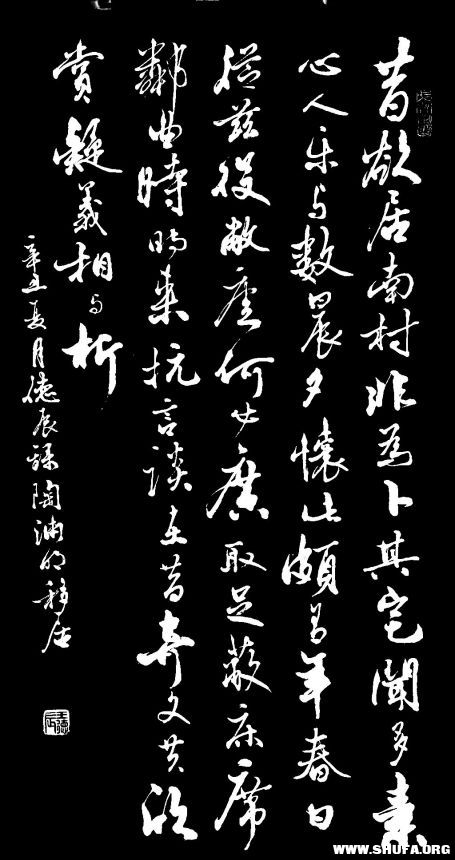 昔欲居南村非為卜其宅聞多素
心人乐与數晨夕懷此頗有年春日
從茲役敝廬何必廣取足蔽床席
鄰曲時時来抗言談在昔奇文共欣
賞疑義相与析
辛丑夏月德辰錄陶淵明移居
WWW.SHUFA.ORG